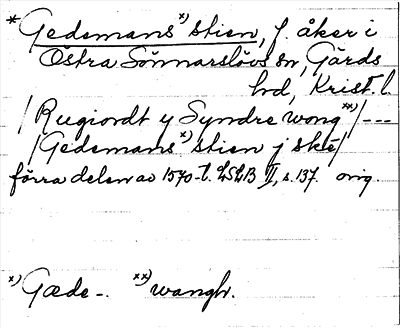 *Gedemans *) stien, f. åker i
Östra Sönnarslövs sn, Gärds
hd, Krist. l.
/Rugiordt y Syndre wong **)/---
/Gedemans *) stien j ske/
förra delen av 1570-t. LSLB II, s. 137. orig.
*) Gæde-. **) wangh.